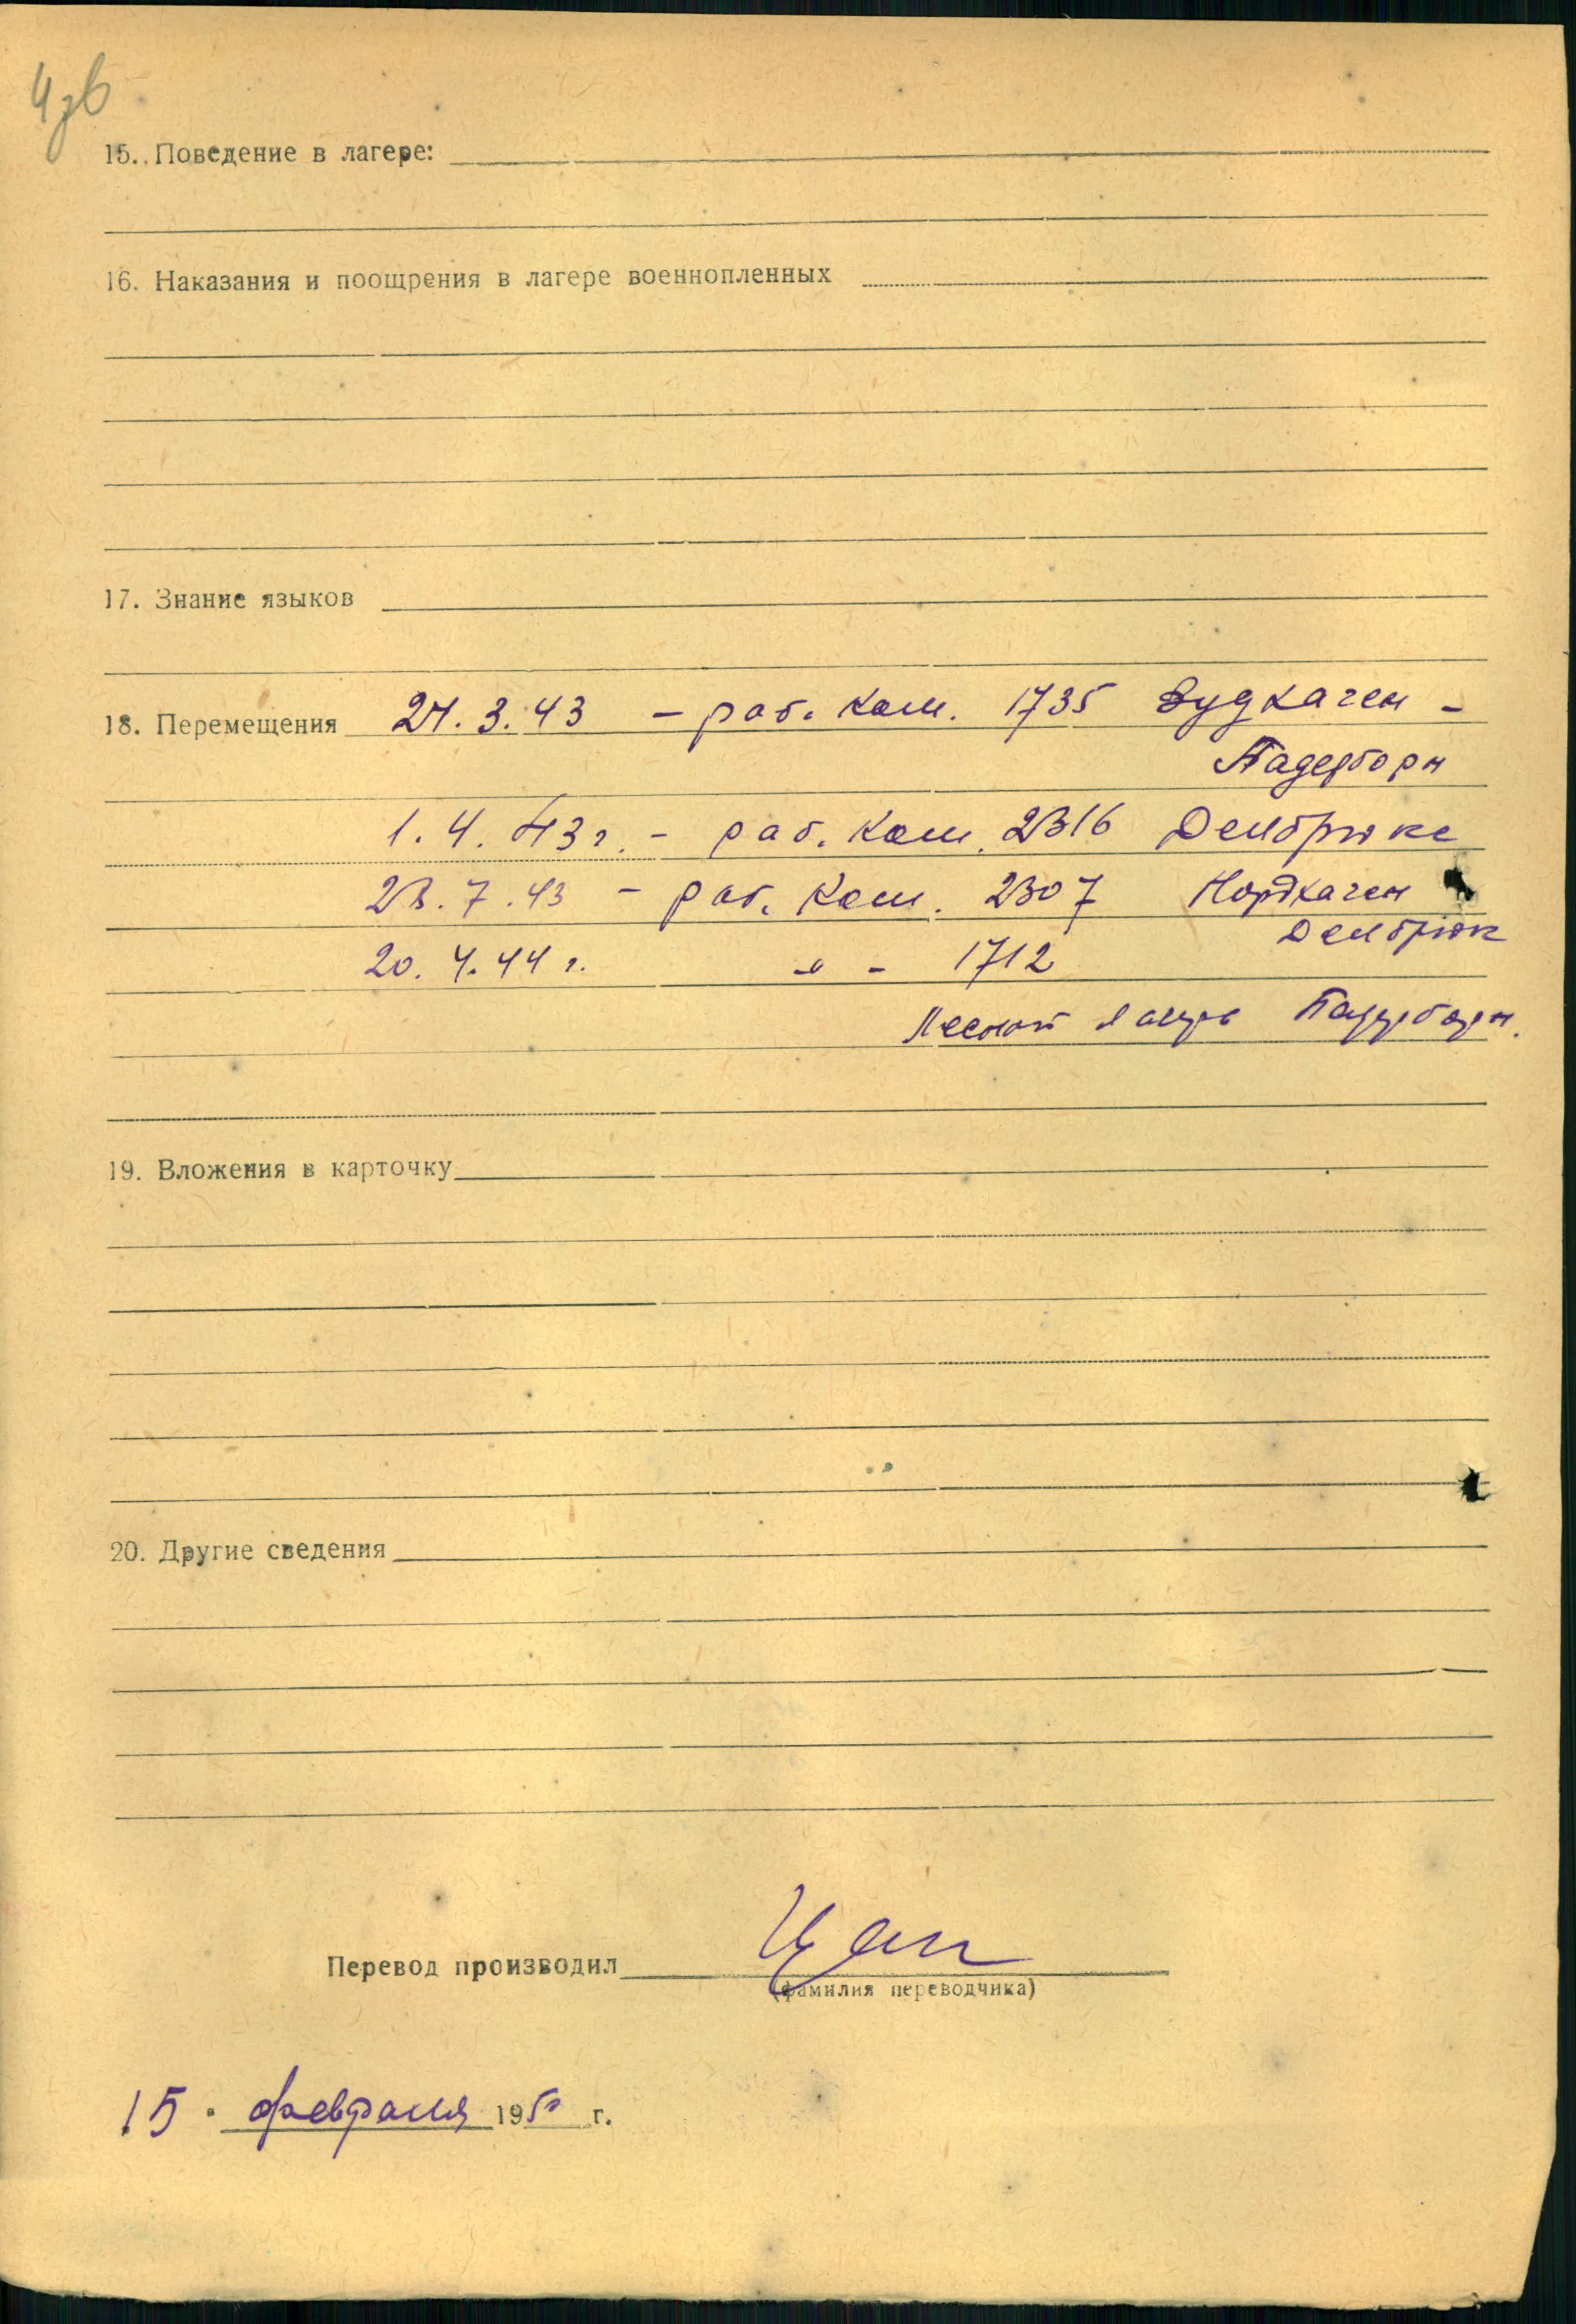 15. Поведение в лагере:
16. Наказания и поощрения в лагере военнопленных
17. Знание языков
18. Перемещения 24. 3. 43 – раб. ком. 1735 Зудхаген –
Падерборн
1. 4. 43 г. – раб. ком. 2316 Делбрюке
23. 7. 43 – раб. ком. 2307 Нордхаген
Делбрюк
20. 4. 44 г. –"– 1712
Лесной лагерь Падерборн.
19. Вложения в карточку
20. Другие сведения
Перевод производил
(фамилия переводчика)
15. февраля 1950 г.